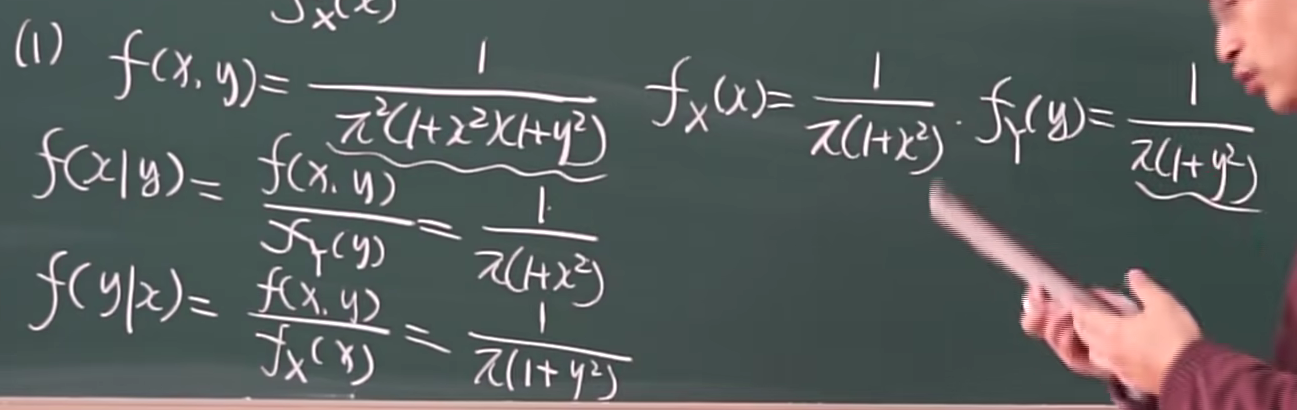 f_X(x)
(1) f(x, y) = 1 / π²(1+x²)(1+y²)   f_X(x) = 1 / π(1+x²) · f_Y(y) = 1 / π(1+y²)
f(x|y) = f(x, y) / f_Y(y) = 1 / π(1+x²)
f(y|x) = f(x, y) / f_X(x) = 1 / π(1+y²)